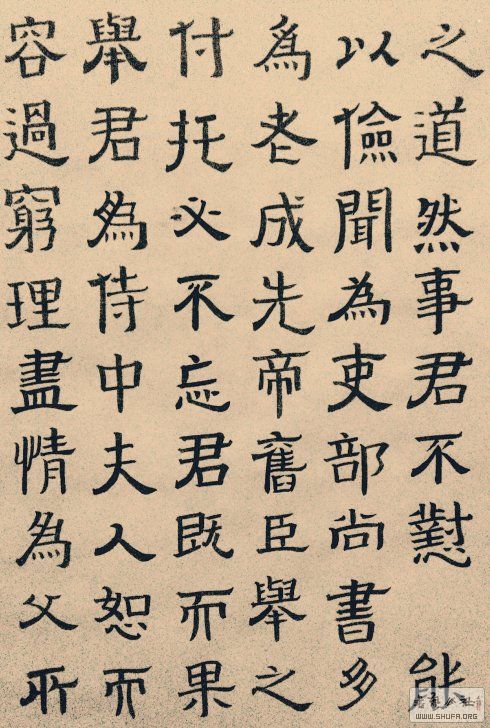 之道然事君不懟能
以儉聞為吏部尚書多
爲老成先帝舊臣舉之
付托必不忘君既而果
舉君爲侍中夫人恕而
容過窮理盡情爲父所
WWW.SHUFA.ORG